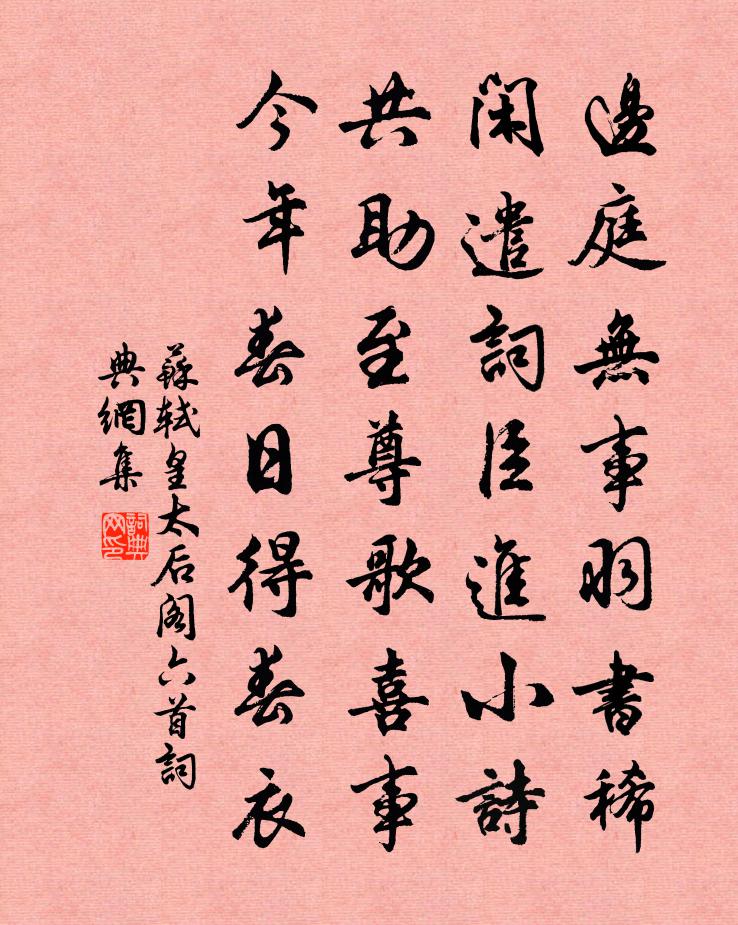 邊庭無事羽書稀
閑遣詞臣進小詩
共助至尊歌喜事
今年春日得春衣
蘇軾皇太后閣六首詞
典網集
詞典網印